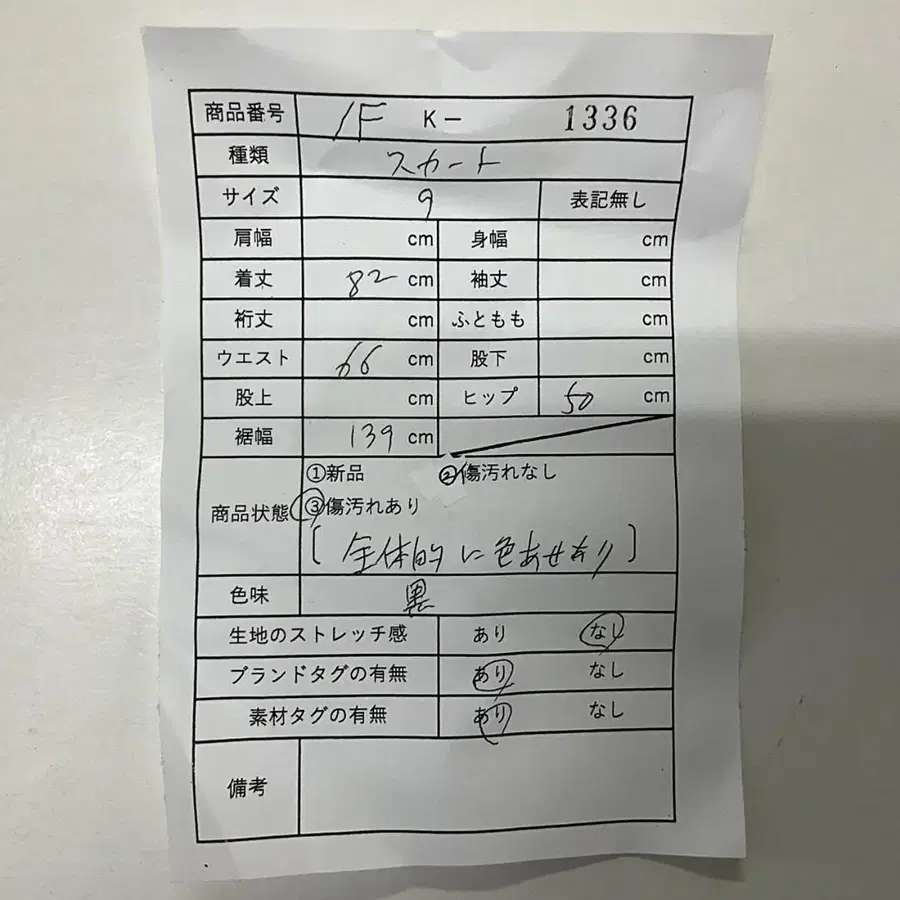 商品番号 1F K- 1336
種類 スカート
サイズ 9 表記無し
肩幅 cm 身幅 cm
着丈 82 cm 袖丈 cm
裄丈 cm ふともも cm
ウエスト 66 cm 股下 cm
股上 cm ヒップ 50 cm
裾幅 139 cm
①新品 ②傷汚れなし
商品状態 ③傷汚れあり
[全体的に色あせあり]
色味 黒
生地のストレッチ感 あり なし
ブランドタグの有無 あり なし
素材タグの有無 あり なし
備考